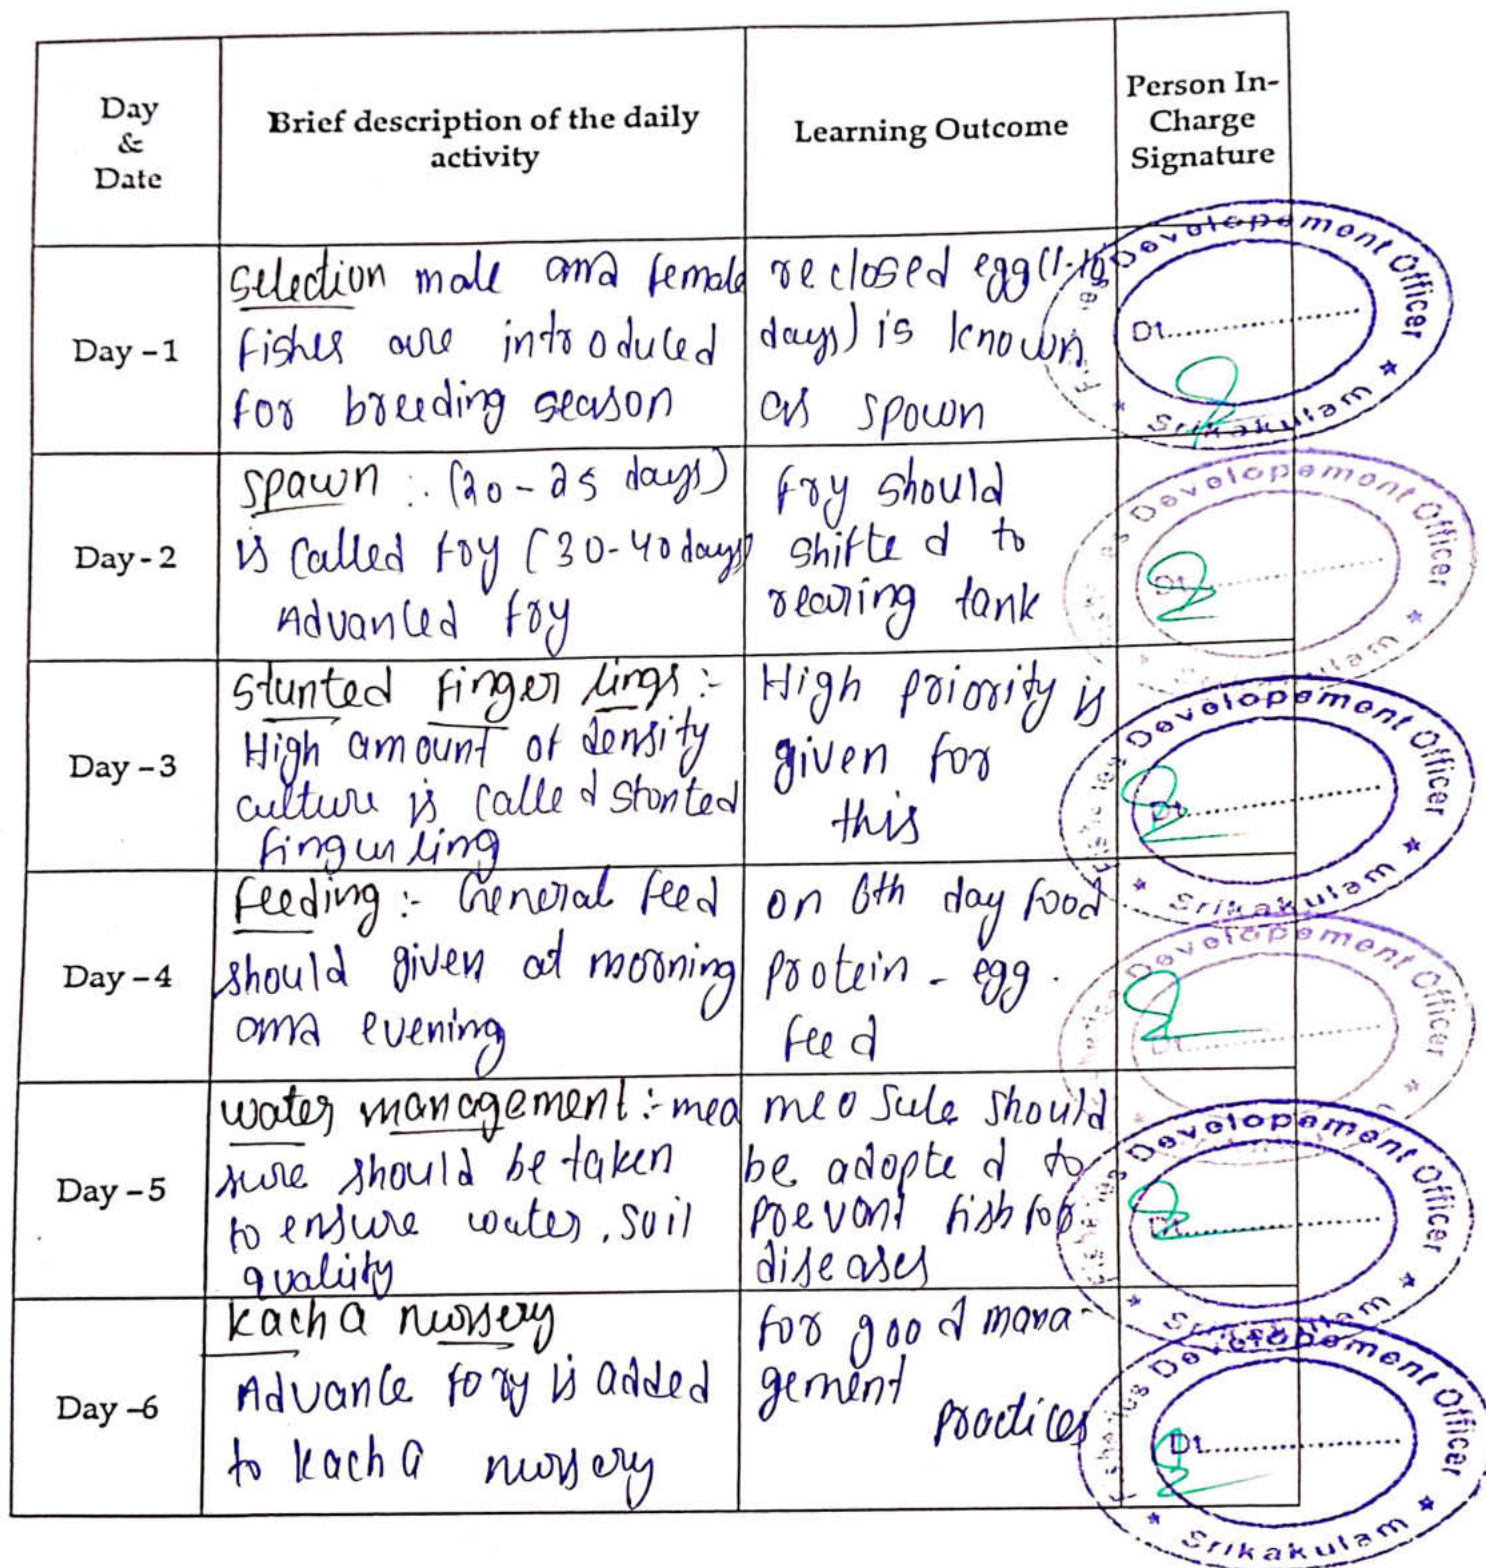 Day
&
Date
Brief description of the daily
activity
Learning Outcome
Person In-
Charge
Signature
Day - 1
Selection male and female
fishes are introduced
for breeding season
reclosed egg (1-10
days) is known
as spawn
Fisheries Developement Officer
Dt.....................
* Srikakulam *
Day - 2
spawn :. (20-25 days)
is called fry (30-40 days)
Advanced fry
fry should
shifted to
rearing tank
Developement Officer
Dt.....................
Day - 3
Stunted Finger lings :-
High amount of density
culture is called stonted
fingurling
High priority is
given for
this
Developement Officer
Dt.....................
* Srikakulam *
Day - 4
Feeding :- General feed
should given at morning
and evening
on 6th day food
protein - egg.
feed
Developement Officer
Dt.....................
Day - 5
water management :- mea
sure should be taken
to ensure water, soil
quality
should
be adopted to
prevant fish for
diseases
Fisheries Developement Officer
Dt.....................
* Srikakulam *
Day -6
kacha nursery
Advance fory is added
to kacha nursery
for good mana-
gement
practices
Fisheries Developement Officer
Dt.....................
* Srikakulam *